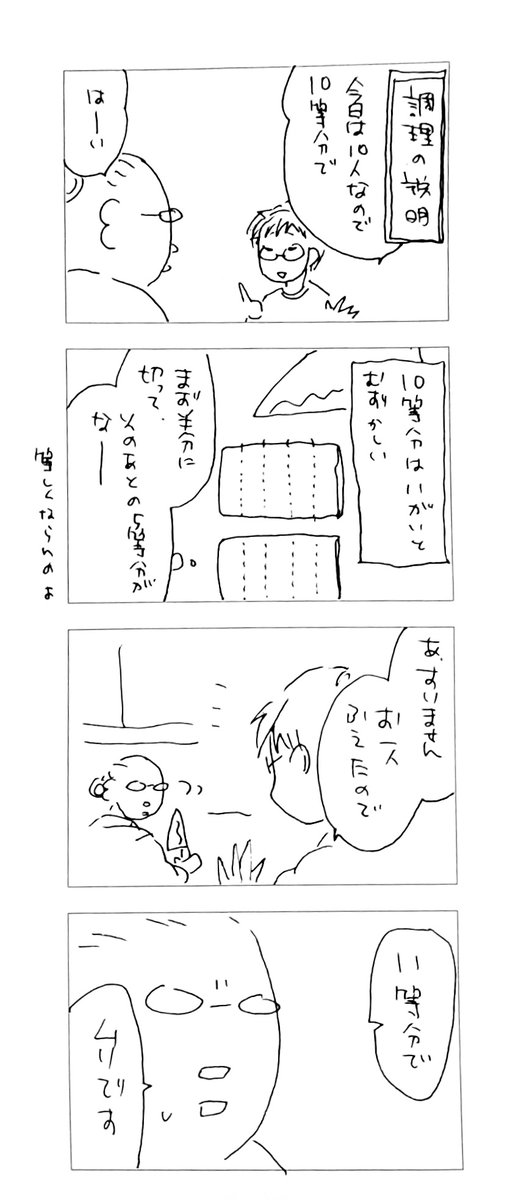 調理の説明
今日は10人なので
10等分で
はーい
10等分はいがいと
むずかしい
まず半分に
切って、
そのあとの5等分が
なー
等しくならんのよ
あ、すいません
お一人
ふえたので
11等分で
ムリです